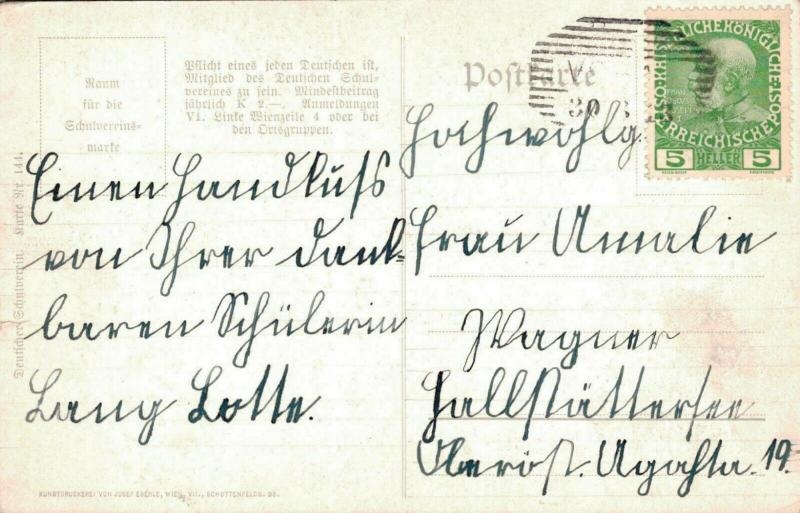 Raum
für die
Schulvereins-
marke
Pflicht eines jeden Deutschen ist,
Mitglied des Deutschen Schul-
vereines zu sein. Mindestbeitrag
jährlich K 2.—. Anmeldungen
VI. Linke Wienzeile 4 oder bei
den Ortsgruppen.
Deutscher Schulverein. Karte Nr. 144.
Einen Handkuß
von Ihrer dank-
baren Schülerin
Lang Lotte.
KUNSTDRUCKEREI VON JOSEF EBERLE, WIEN, VII., SCHOTTENFELDG.
Postkarte
5 HELLER 5
Hochwohlg.
Frau Amalie
Wagner
Hallstättersee
Oberöst. 19.